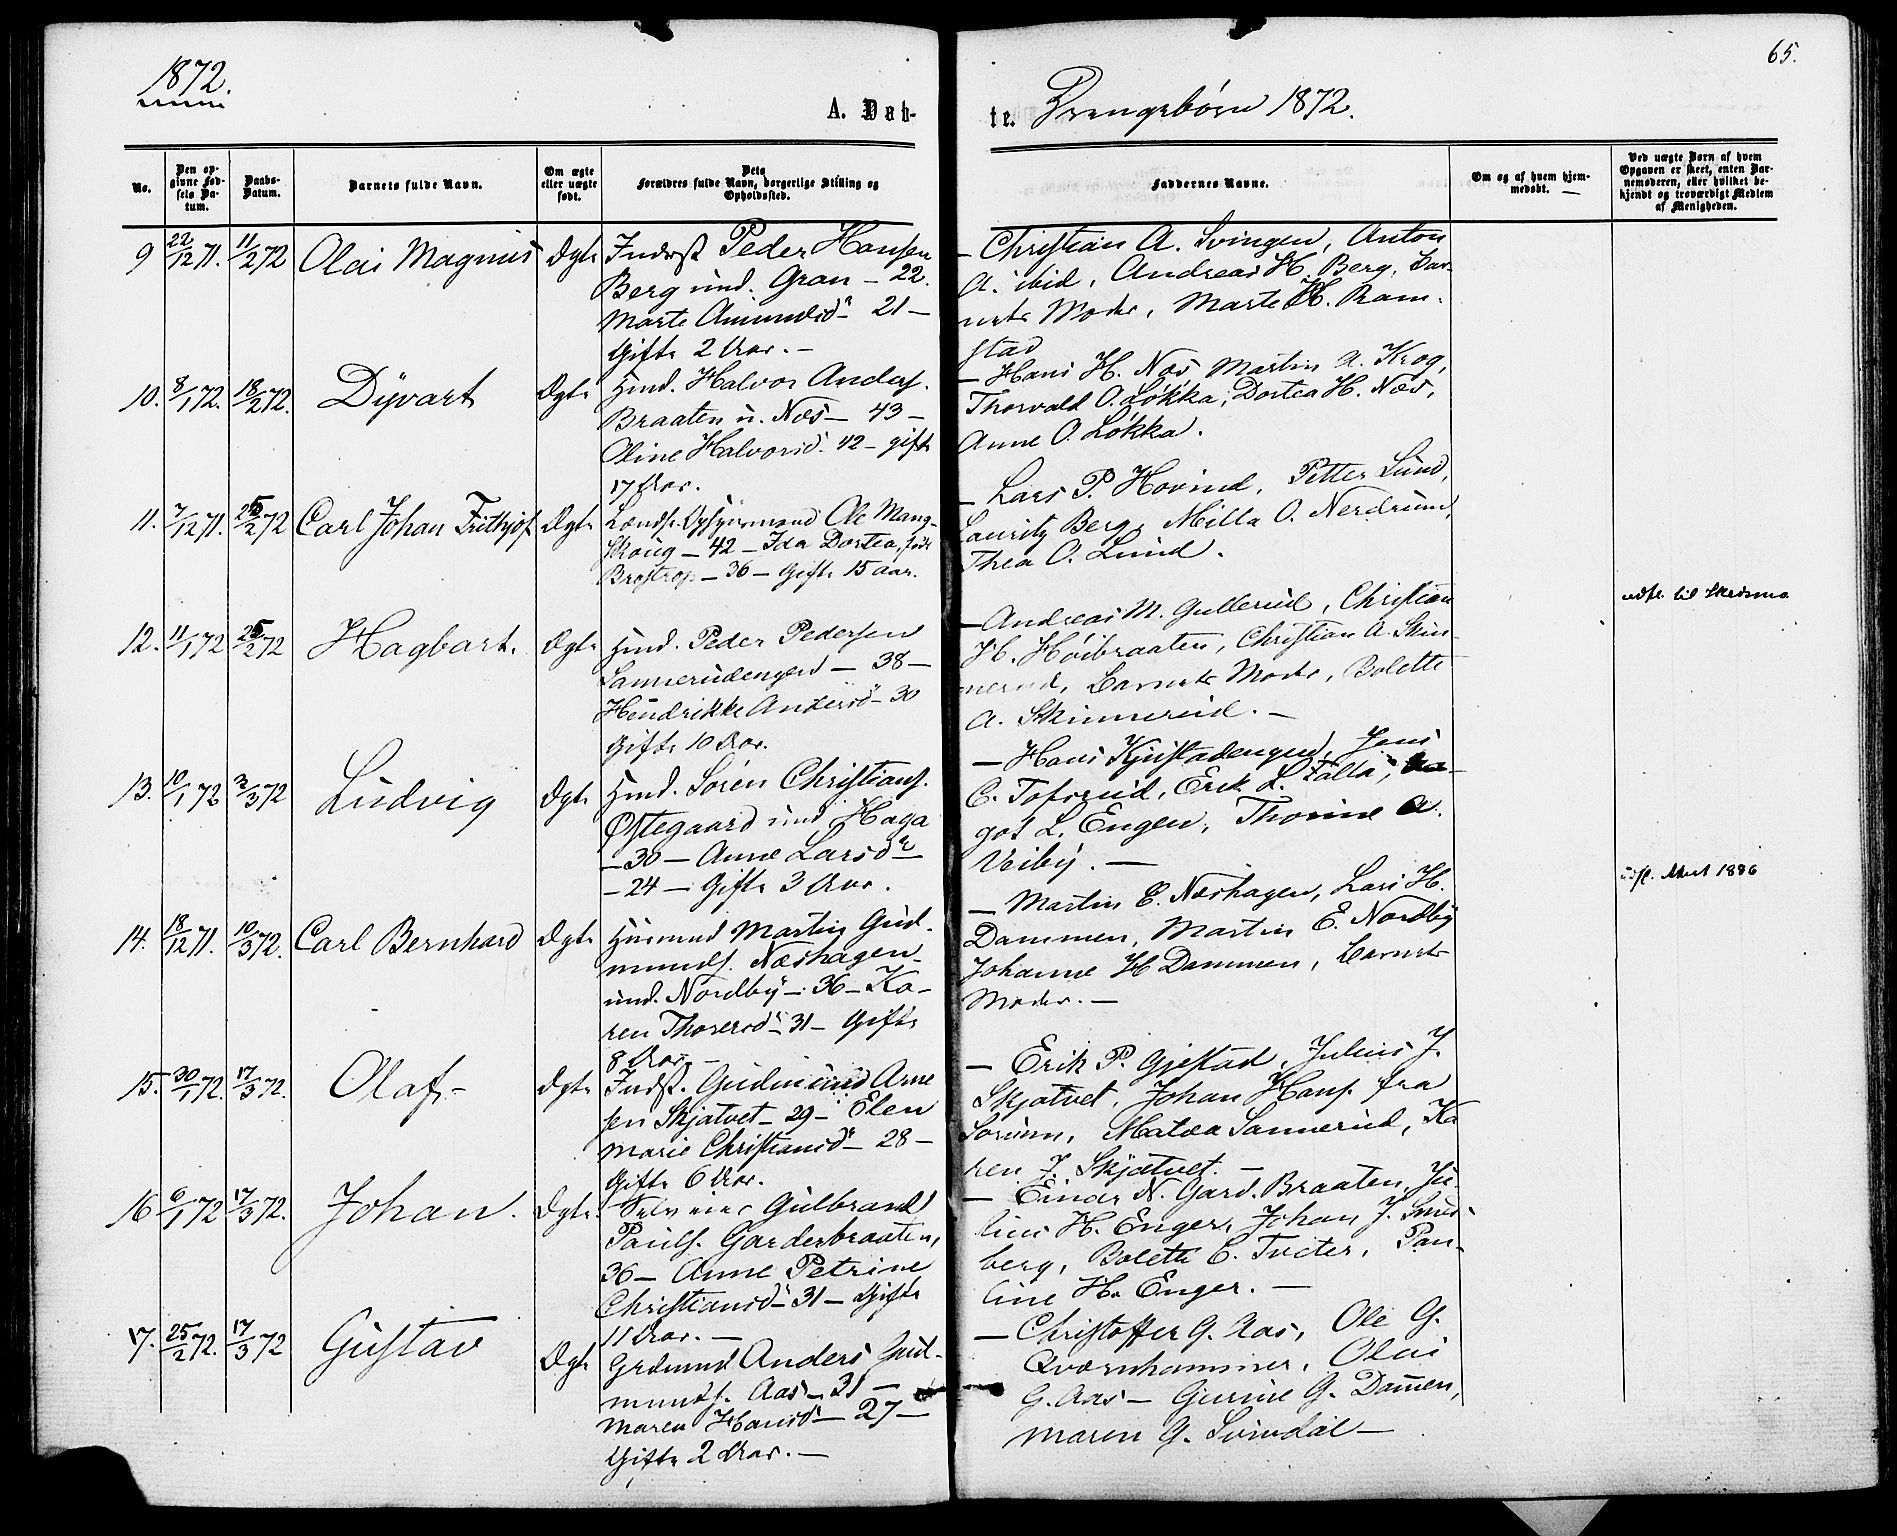 1872.
65.
A. Døb-
te. Drengebørn 1872.
No.
Den op-
givne Fød-
sels Da-
tum.
Daabs-
Datum.
Barnets fulde Navn.
Om ægte
eller uægte
født.
Dets
Forældres fulde Navn, borgerlige Stilling og
Opholdssted.
Faddernes Navne.
Om og af hvem hjem-
medøbt.
Ved uægte Børn af hvem
Opgaven er skeet, enten Bar-
nemoderen, eller hvilket be-
kjendt og troværdigt Medlem
af Menigheden.
9 22/12 71. 11/2 72 Olai Magnus Ægte
Inderst Peder Hansen
Berg und. Gran – 22.
Marte Amundsd. 21 –
Gifte 2 Aar. –
– Christian A. Svingen, Anton
A. ibid, Andreas H. Berg, Bar-
nets Moder, Marte H. Ram-
stad
10. 8/1 72. 18/2 72. Dÿvart Ægte
Hmd. Halvor Anders.
Braaten u. Næs – 43 –
Oline Halvorsd. 42 – gifte
17 Aar.
– Hans H. Næs Martin A. Krog,
Thorvald O. Løkka, Dortea H. Næs,
Anne O. Løkka.
11. 7/12 71. 25/2 72 Carl Johan Frithjof Ægte
Landh. Ole Mang-
Skoug – 42 – Ida Dortea, født
Brostrop – 36 – Gifte 15 aar.
– Lars P. Hovind, Petter Lund,
Lauritz Berg, Milla O. Nerdrum,
Thea O. Lund.
udfl. til Skedsmo
12. 11/1 72 25/2 72 Hagbart. Ægte
Hmd. Peder Pedersen
Sannerudengen – 38 –
Hendrikke Andersd – 30
Gifte 10 Aar.
– Andreas M. Gullerud, Christian
H. Høibraaten, Christian A. Skin-
nerud, Barnets Moder, Bolette
A. Skinnerud. –
13. 10/1 72 3/3 72 Ludvig Ægte
Hmd. Søren Christians.
Østegaard und Haga
– 30 – Anne Larsd
– 24 – Gifte 3 Aar.
– Hans Kjustadengen, Jens
C. Tofsrud, Erik L. Falla,
got L. Engen, Thorine A.
Veiby. –
udfl. Attest 1886
14. 18/12 71. 10/3 72. Carl Bernhard Ægte
Husmand Martin Gud-
munds. Næshagen
und. Nordbÿ – 36 – Ka-
ren Thorersd – 31 – Gifte
8 Aar –
– Martin E. Næshagen, Lars H.
Dammen, Martin E. Nordbÿ
Johanne H Dammen, Barnets
Moder. –
15. 30/1 72. 17/3 72. Olaf – Ægte
Indst. Gudmund Arne
sen Skjatvet – 29 – Elen
Marie Christiansd – 28 –
Gifte 6 Aar.
– Erik P. Gjestad, Julius J.
Skjatvet, Johan Hans. fra
Sørum, Matea Sannerud, Ka
ren J. Skjatvet. –
16 6/1 72 17/3 72. Johan. Ægte.
Selveier Gulbrand
Pauls. Garderbraaten,
36 – Anne Petrine
Christiansd – 31 – Gifte
11 Aar. –
– Einar N. Gard. Braaten, Ju-
lius H. Enger, Johan J. Smed-
berg, Bolette C. Tveter, Pau-
line H. Enger. –
17. 25/2 72. 17/3 72 Gustav Ægte
Grdmand Anders Gud-
munds. Aas – 31 –
Maren Hansd – 27 –
Gifte 2 Aar. –
– Christoffer G. Aas, Ole G.
Qværnhammer, Olai
G. Aas – Gurine G. Damen,
Maren G. Svindal –